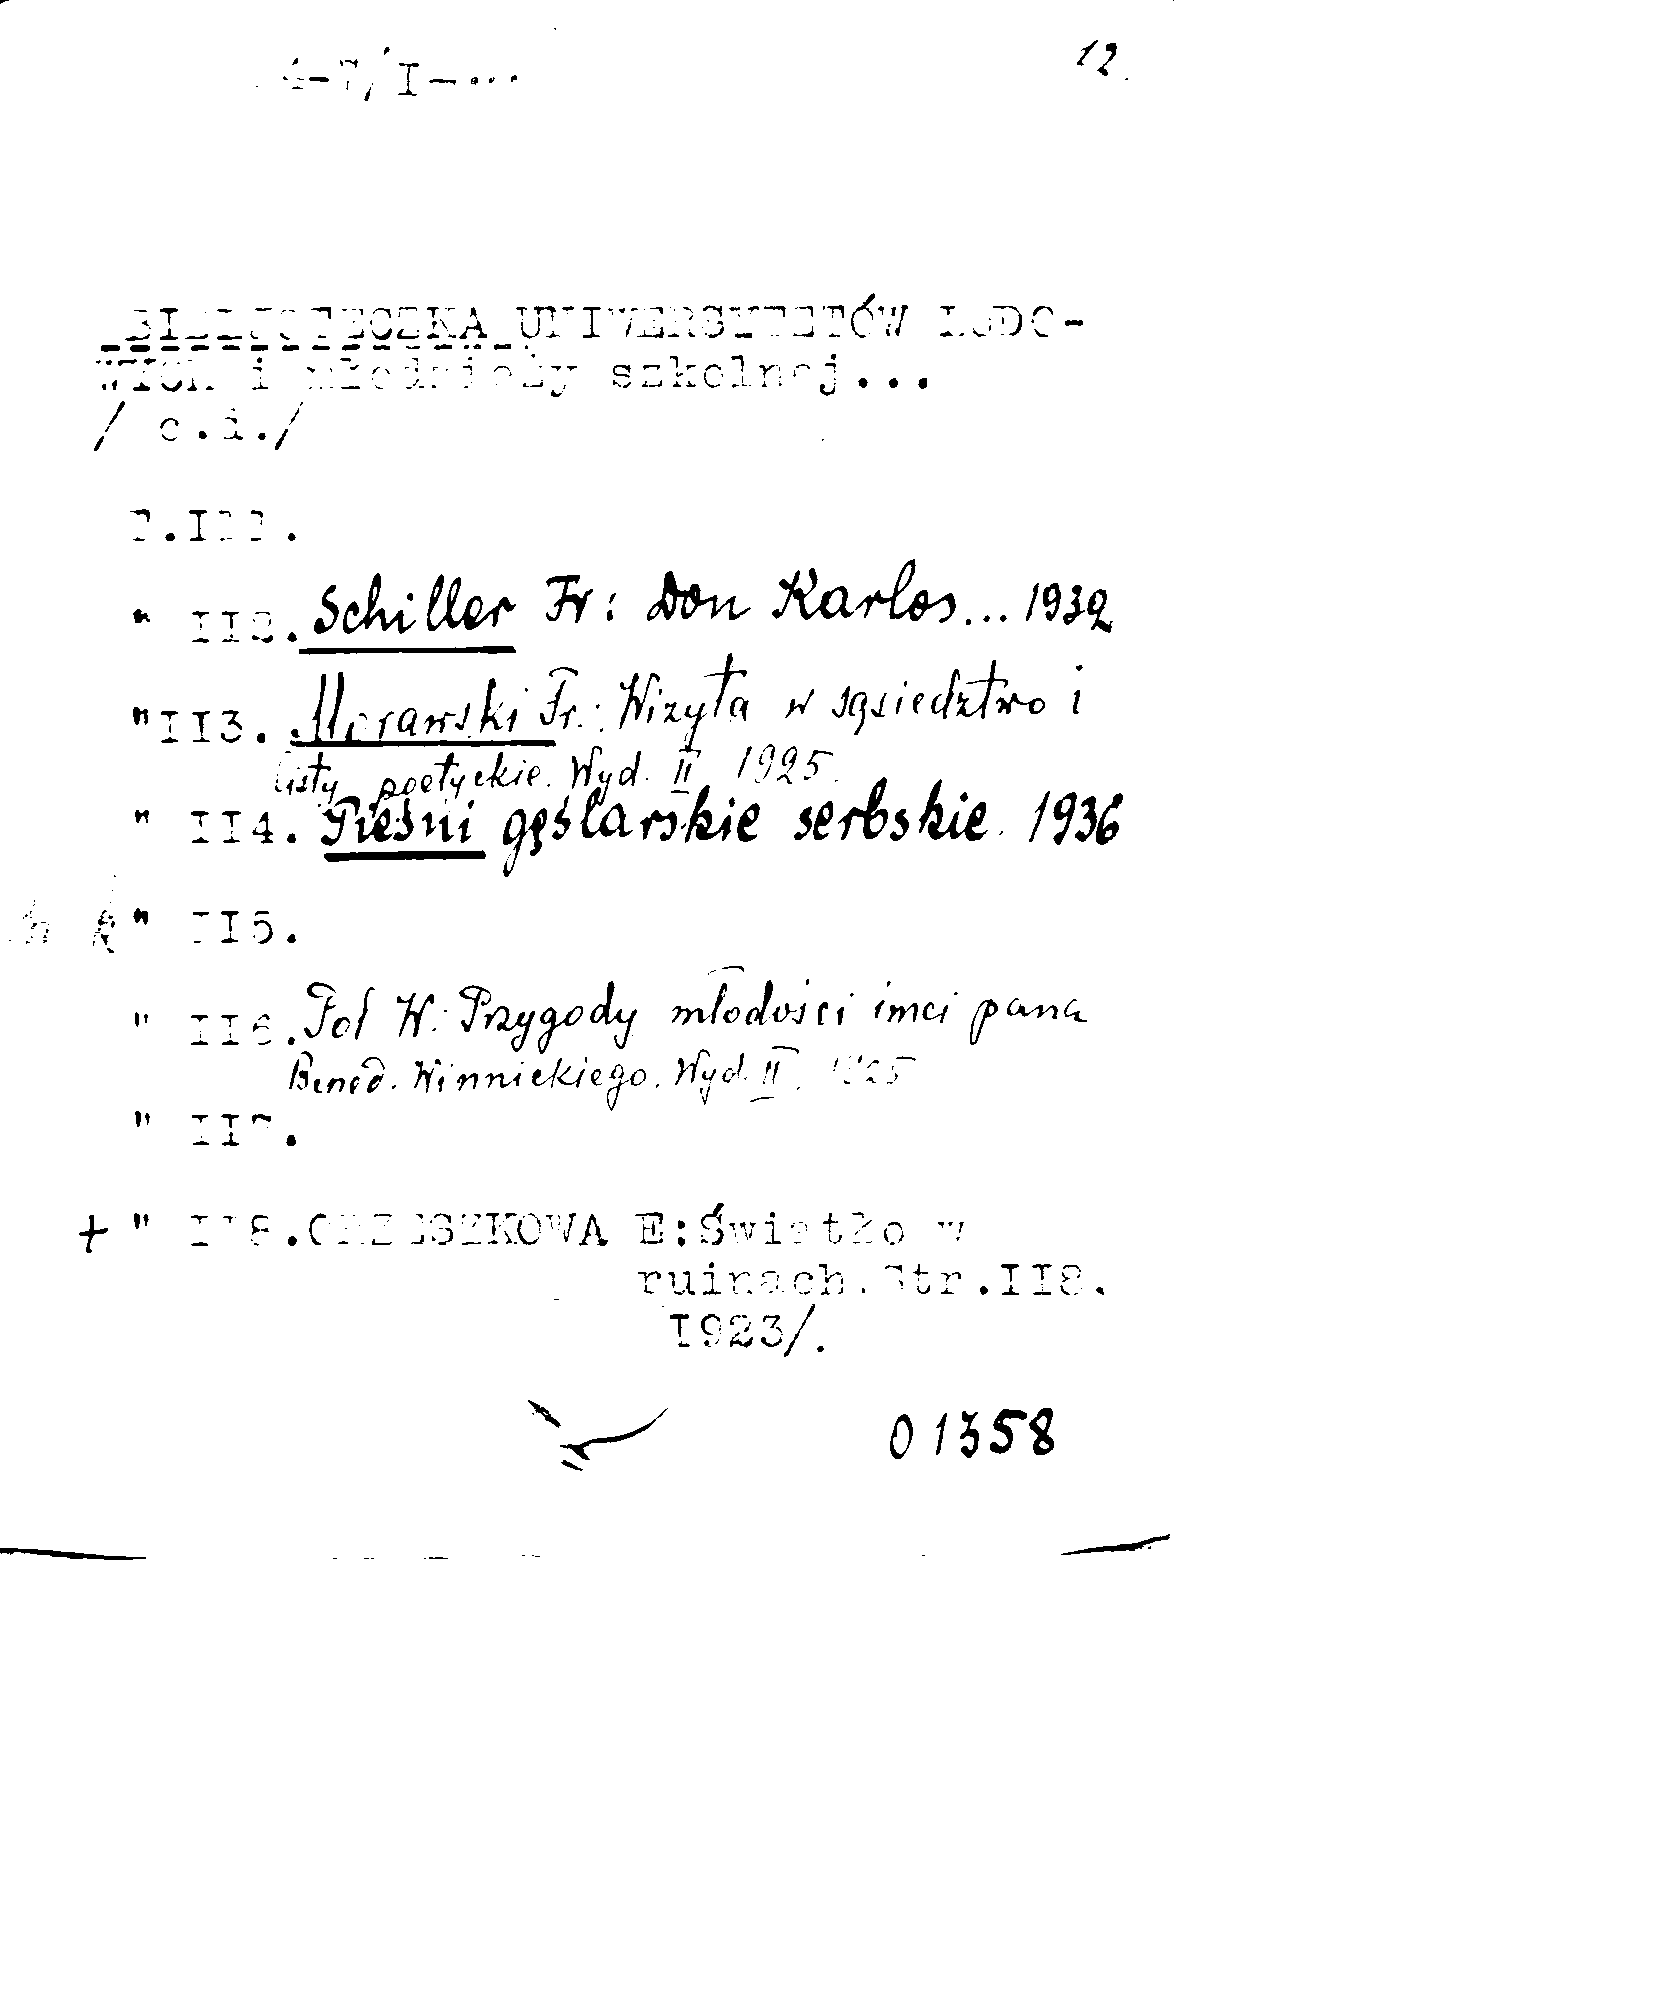 4-7/I-...
12.
BIBLIOTECZKA UNIWERSYTETÓW LUDO-
WYCH i młodzieży szkolnej...
/ c.i./
T.III.
" II2. Schiller Fr: Don Karlos... 1932
"II3. Morawski Fr.: Wizyta w sąsiedztwo i
listy poetyckie. Wyd. II 1925.
" II4. Pieśni gęślarskie serbskie. 1936
k" II5.
" II6. Pol W. Przygody młodości imci pana
Bened. Winnickiego. Wyd. II. 1925
" II7.
+ " II8.ORZESZKOWA E:Światło w
ruinach.Str.II8.
I923/.
01358